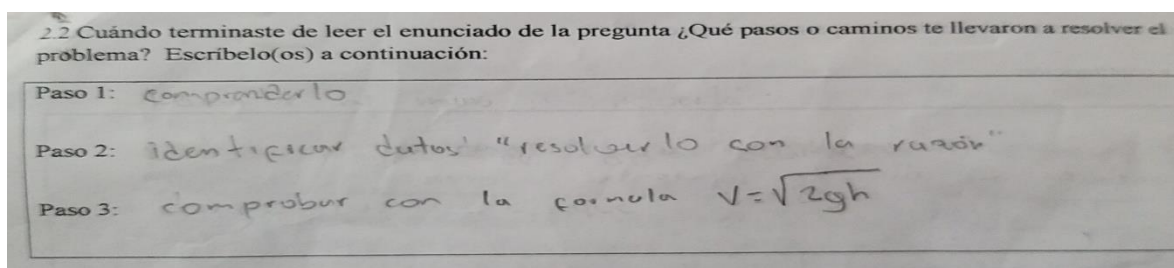 2.2 Cuándo terminaste de leer el enunciado de la pregunta ¿Qué pasos o caminos te llevaron a resolver el
problema? Escríbelo(os) a continuación:
Paso 1: comprenderlo
Paso 2: identificar datos "resolverlo con la razón"
Paso 3: comprobar con la formula V=√2gh